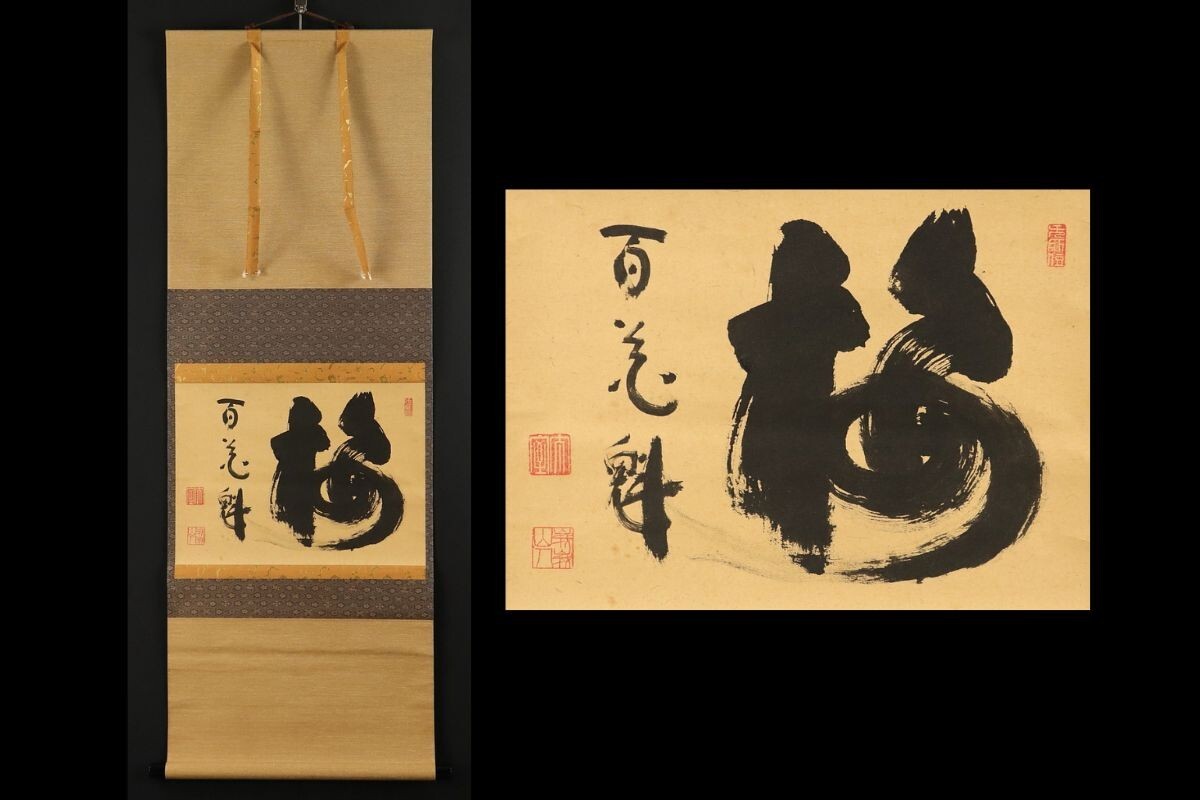 梅
百花魁
梅
百花魁